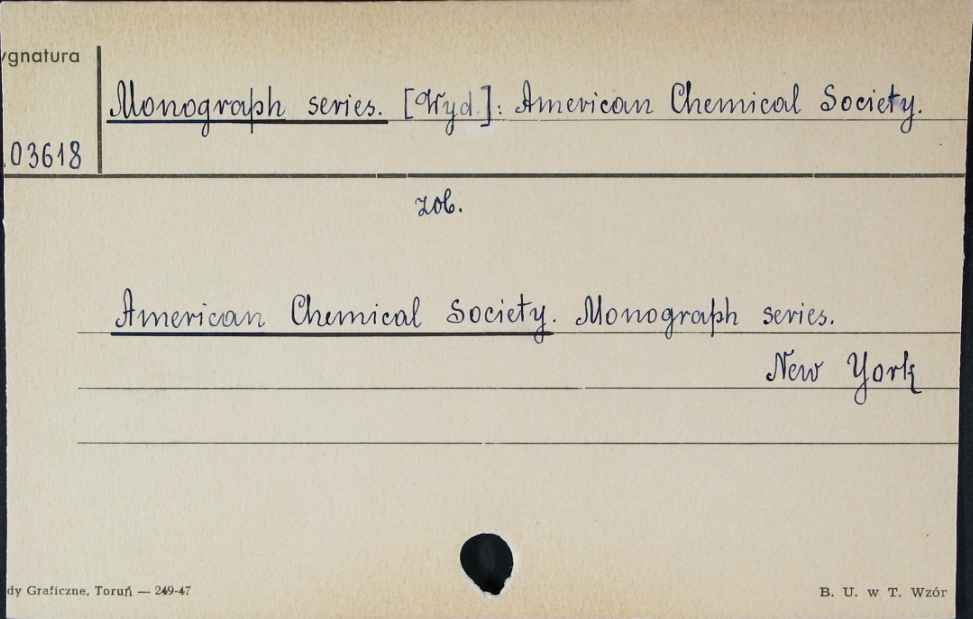 ygnatura
Monograph series. [Wyd.]: American Chemical Society.
.03618
zob.
American Chemical Society. Monograph series.
New York
dy Graficzne, Toruń — 249-47
B. U. w T. Wzór